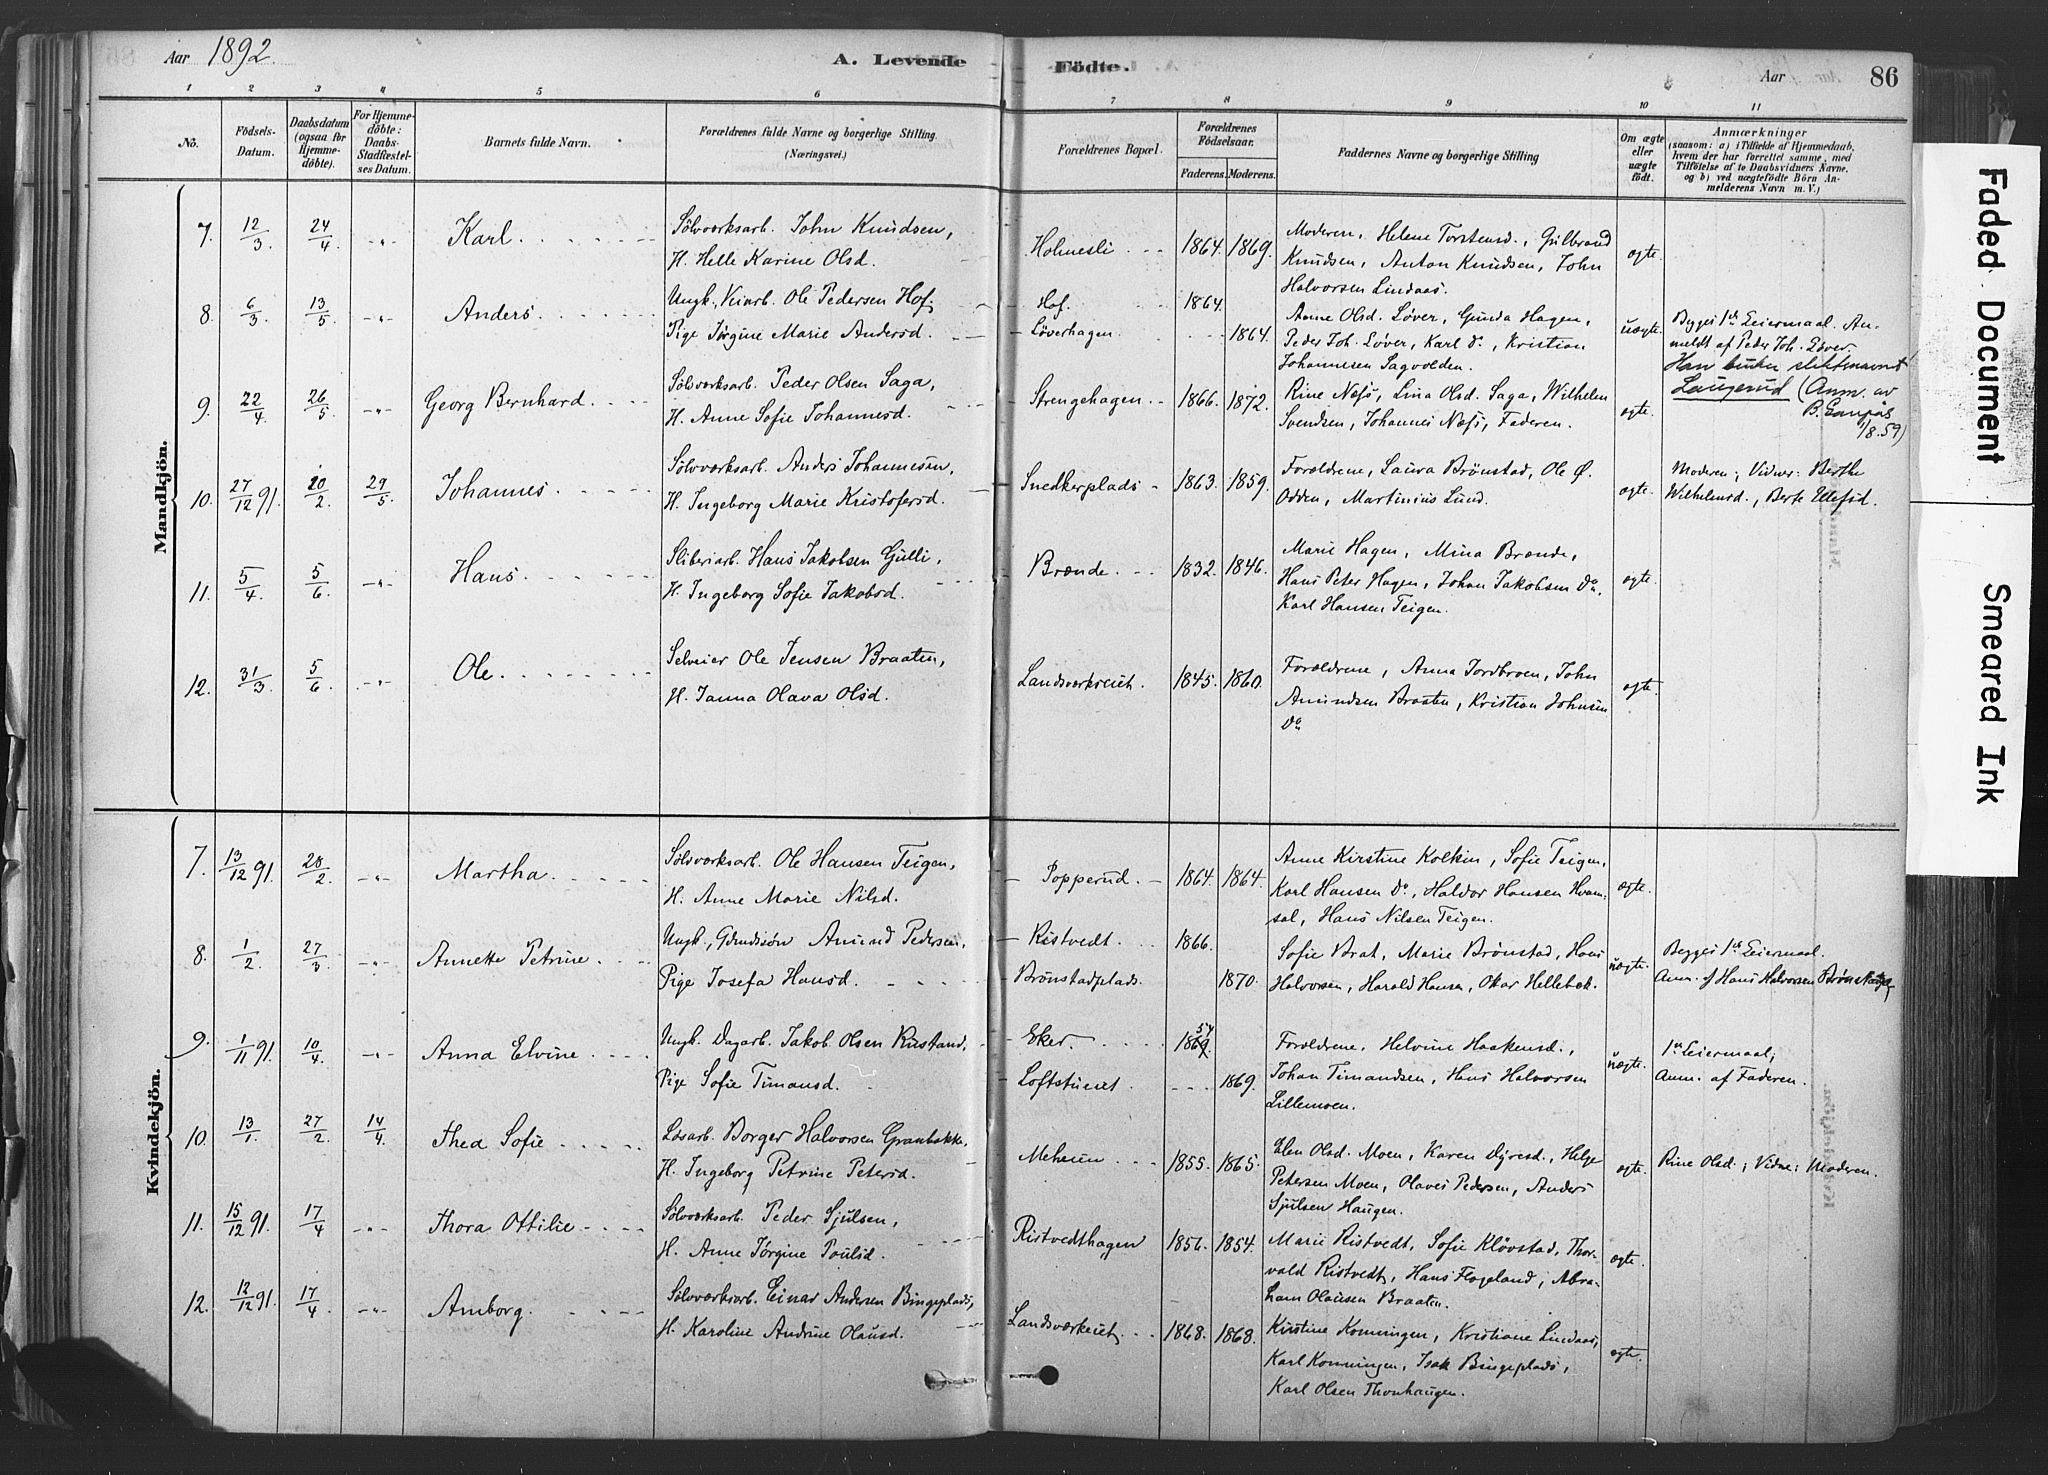 Aar 1892.
A. Levende Födte.
Aar 86
1 2 3 4 5 6 7 8 9 10 11
No.
Födsels-Datum.
Daabsdatum (ogsaa for Hjemmedöbte).
For Hjemmedöbte: Daabs-Stadfæstelses Datum.
Barnets fulde Navn.
Forældrenes fulde Navne og borgerlige Stilling. (Næringsvei.)
Forældrenes Bopæl.
Forældrenes Födselsaar.
Faderens. Moderens.
Faddernes Navne og borgerlige Stilling
Om ægte eller uægte födt.
Anmærkninger
(saasom: a) i Tilfælde af Hjemmedaab,
hvem der har forrettet samme, med
Tilföielse af to Daabsvidners Navne.
og b) ved uægtefödte Börn An-
melderens Navn m. V.)
Mandkjön.
7. 12/3 24/4 -"- Karl. Sølvværksarb. John Knudsen, Holmesli 1864. 1869. Moderen, Helene Torstensd., Gulbrand ægte.
H. Helle Karine Olsd. Knudsen, Anton Knudsen, John
Halvorsen Lindaas.
8. 6/3 13/5 -"- Anders. Ungk., Veiarb. Ole Pedersen Hof, Hof. 1864. Anne Olsd. Løver, Gunda Hagen, uægte. Begges 1ste Leiermaal. An-
Pige Jørgine Marie Andersd. Løverhagen. 1864. Peder Joh. Løver, Karl Do, Kristian meldt af Peder Joh. Løver.
Johannesen Sagvolden. Han bruker slektsnavnet
Laugerud (Anm. av
9. 22/4 26/5 -"- Georg Bernhard. Sølvværksarb. Peder Olsen Saga, Strengehagen 1866. 1872. Rine Næss, Lina Olsd. Saga, Wilhelm ægte. B.
H. Anne Sofie Johannesd. Svendsen, Johannes Næss, Faderen. 1/8.59)
10. 27/12 91. 20/2 29/5 Johannes Sølvværksarb. Anders Johannesen, Snedkerplads 1863. 1859. Forældrene, Laura Brønstad, Ole Ø. ægte. Moderen; Vidner: Berthe
H. Ingeborg Marie Kristofersd. Odden, Martinius Lund. Wilhelmsd., Berte Ellefsd.
11. 5/4 5/6 -"- Hans. Sliberiarb. Hans Jakobsen Gulli, Brænde. 1832. 1846. Marie Hagen, Mina Brænde, ægte.
H. Ingeborg Sofie Jakobsd. Hans Peter Hagen, Johan Jakobsen Do,
Karl Hansen Teigen.
12. 31/3 5/6 -"- Ole. Selveier Ole Jensen Braaten, Landsværkseiet. 1845. 1860. Forældrene, Anna Jordbroen, John ægte.
H. Janna Olava Olsd. Amundsen Braaten, Kristian Johnsen
Do
Kvindekjön.
7. 13/12 91. 28/2 -"- Martha. Sølvværksarb. Ole Hansen Teigen, Popperud. 1864. 1864. Anne Kirstine Kolkin, Sofie Teigen, ægte.
H. Anne Marie Nilsd. Karl Hansen Do, Haldor Hansen Hvam-
sal, Hans Nilsen Teigen.
8. 1/2 27/3 -"- Annette Petrine. Ungk., Gdmdssøn Amund Pedersen, Ristvedt. 1866. Sofie Brat, Marie Brønstad, Hans uægte. Begges 1ste Leiermaal.
Pige Josefa Hansd. Brønstadplads. 1870. Halvorsen, Harald Hansen, Oskar Hellebæk. Anm. af Hans Halvorsen
9. 1/11 91. 10/4 -"- Anna Elvine. Ungk. Dagarb. Jakob Olsen Rustand, Eker. 1869. 54 Forældrene, Helvine Haakensd., uægte. 1ste Leiermaal,
Pige Sofie Timansd. Loftstueiet 1869. Johan Timandsen, Hans Halvorsen Anm. af Faderen.
Lillemoen.
10. 13/1. 27/2. 14/4. Thea Sofie Løsarb. Borger Halvorsen Granbakke, Meheien 1855. 1865. Elen Olsd. Moen, Karen Dyresd., Helge ægte. Rine Olsd.; Vidne: Moderen.
H. Ingeborg Petrine Petersd. Petersen Moen, Olaves Pedersen, Anders
Sjulsen Haugen.
11. 15/12 91. 17/4 -"- Thora Ottilie Sølvværksarb. Peder Sjulsen, Ristvedthagen 1856. 1854. Marie Ristvedt, Sofie Kløvstad, Thor- ægte.
H. Anne Jørgine Poulsd. vald Ristvedt, Hans Flogeland, Abra-
ham Olausen Braaten.
12. 12/12 91. 17/4 -"- Amborg. Sølvværksarb. Einar Andersen Bingeplads, Landsværkeiet. 1868. 1868. Kirstine Konningen, Kristiane Lindaas, ægte.
H. Karoline Andrine Olausd. Karl Konningen, Isak Bingeplads,
Karl Olsen Thonhaugen.
Faded Document
Smeared Ink